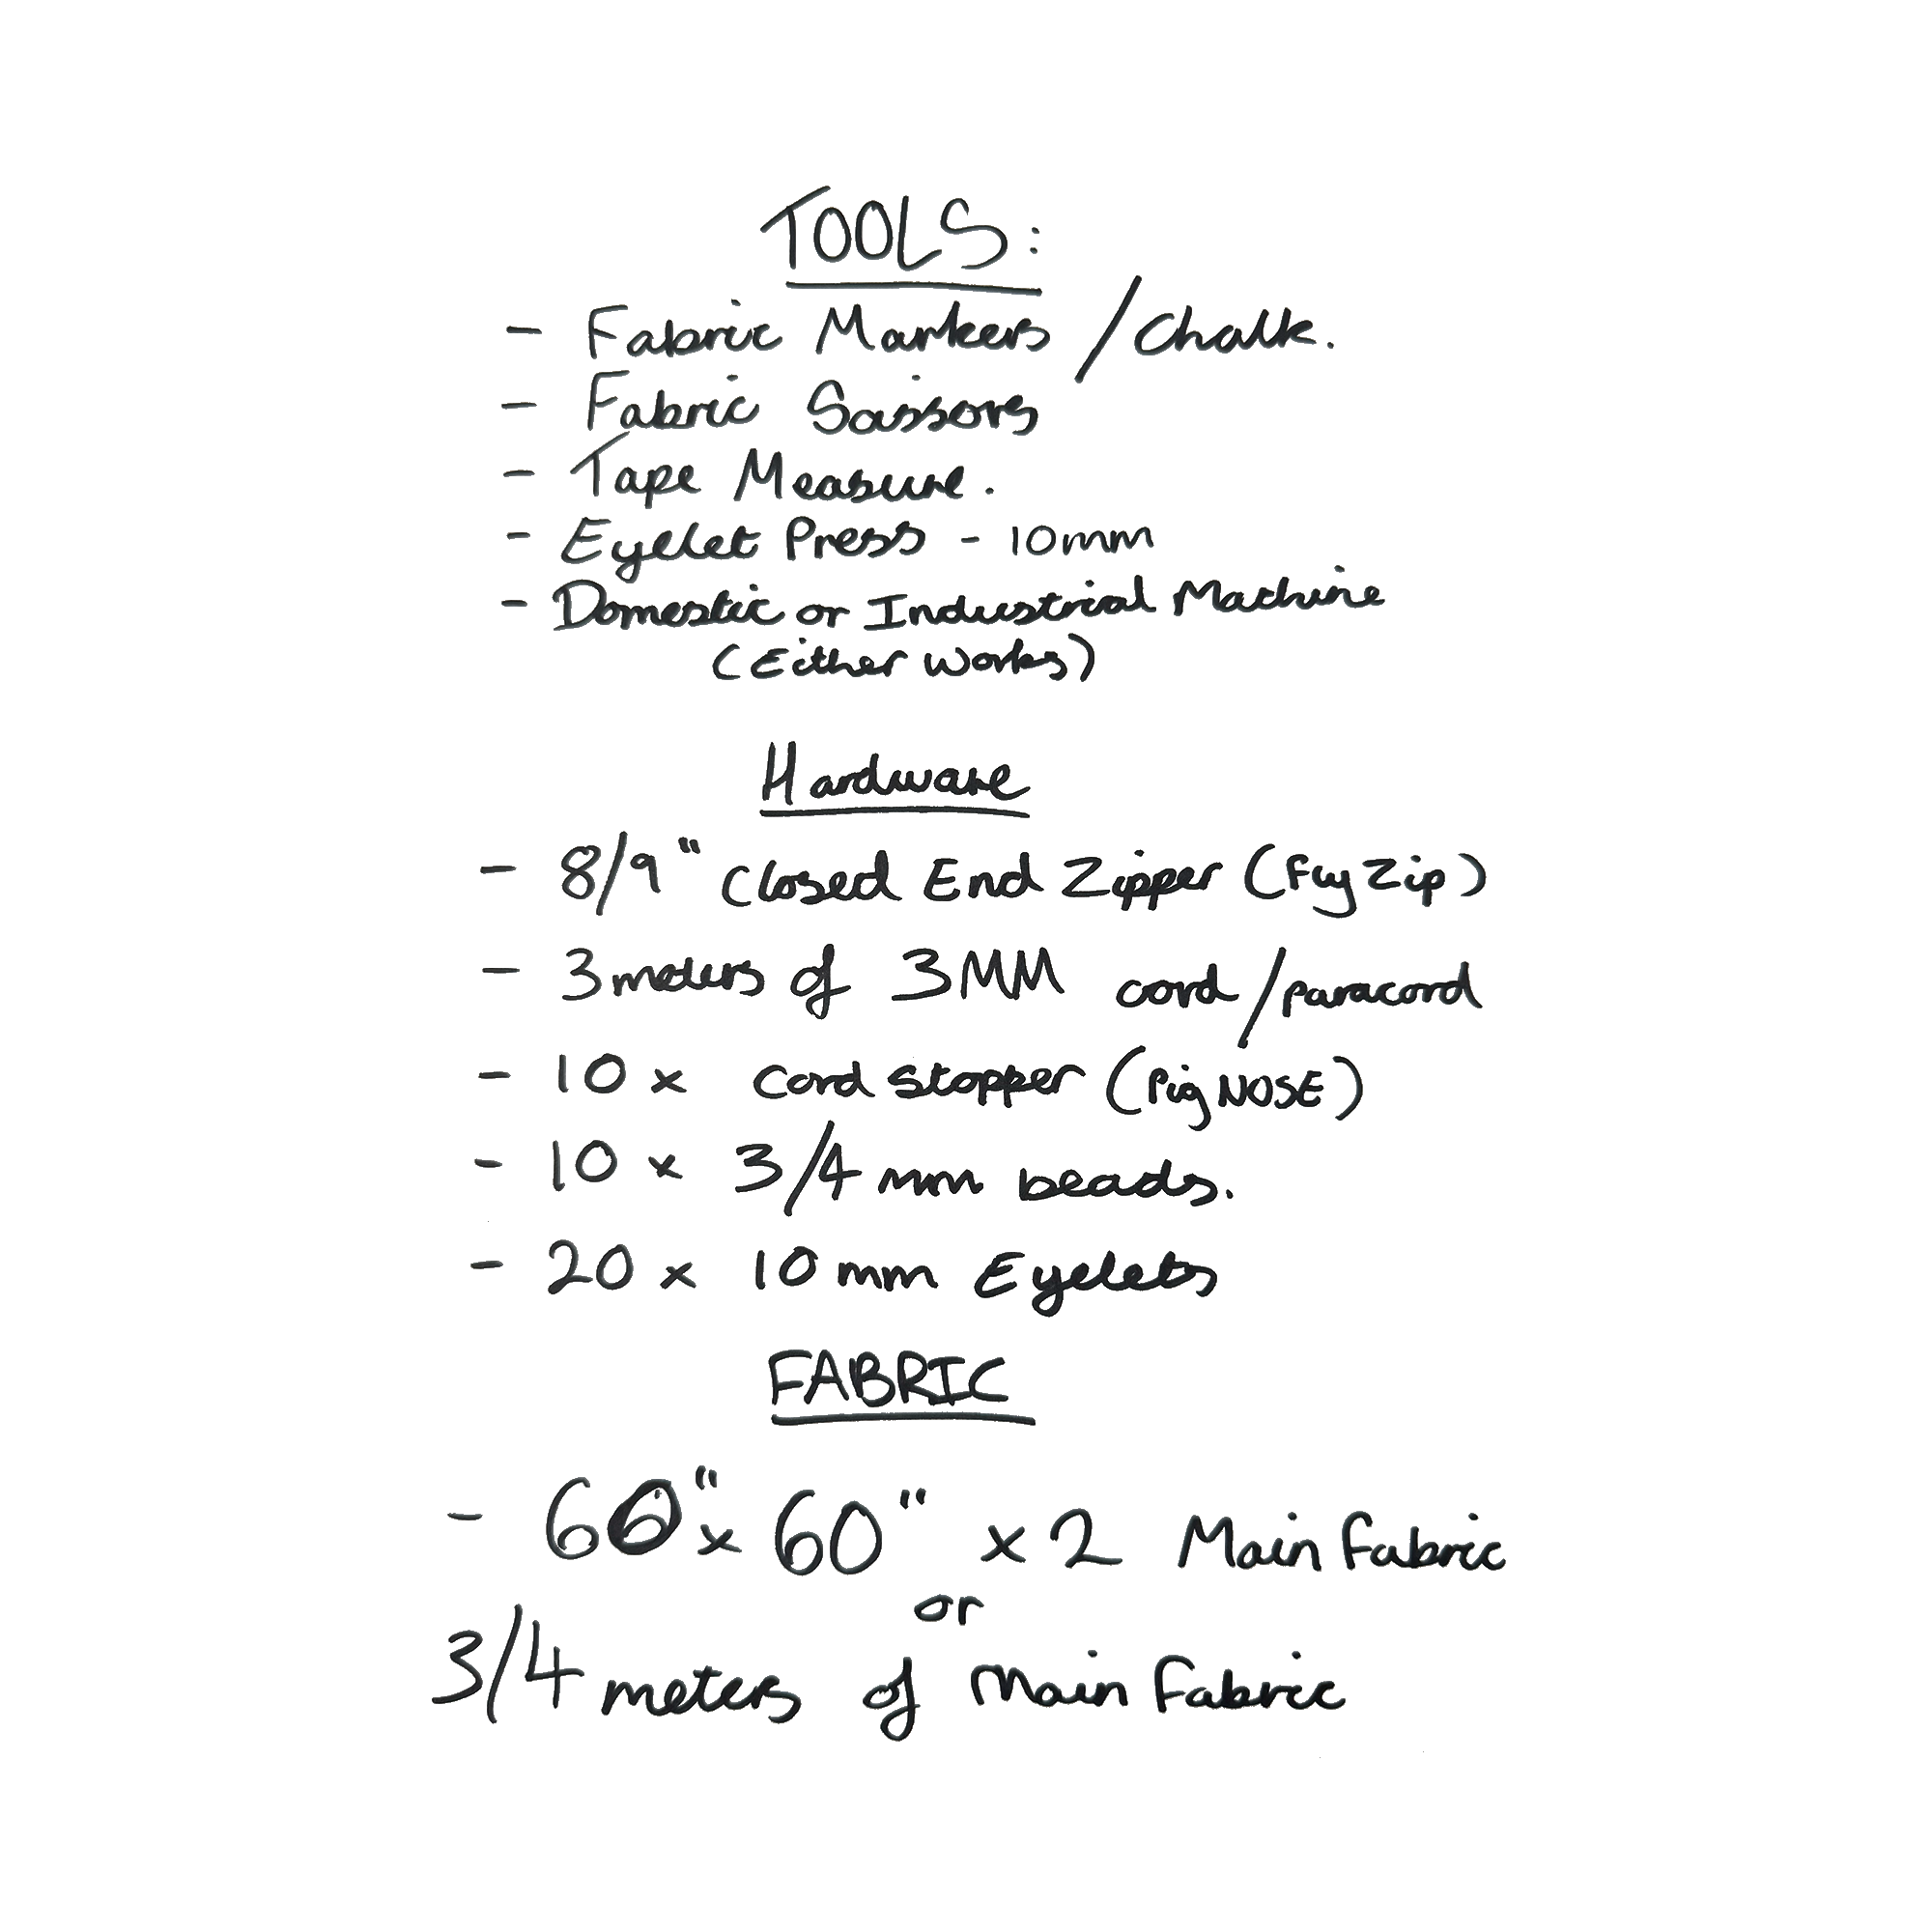 TOOLS:
- Fabric Markers / Chalk.
- Fabric Scissors
- Tape Measure.
- Eyelet Press - 10mm
- Domestic or Industrial Machine
(Either Works)
Hardware
- 8/9" Closed End Zipper (Fly Zip)
- 3meters of 3MM cord/paracord
- 10 x cord stopper (Pig NOSE)
- 10 x 3/4 mm beads.
- 20 x 10 mm Eyelets
FABRIC
- 60" x 60" x 2 Main Fabric
or
3/4 meters of Main Fabric